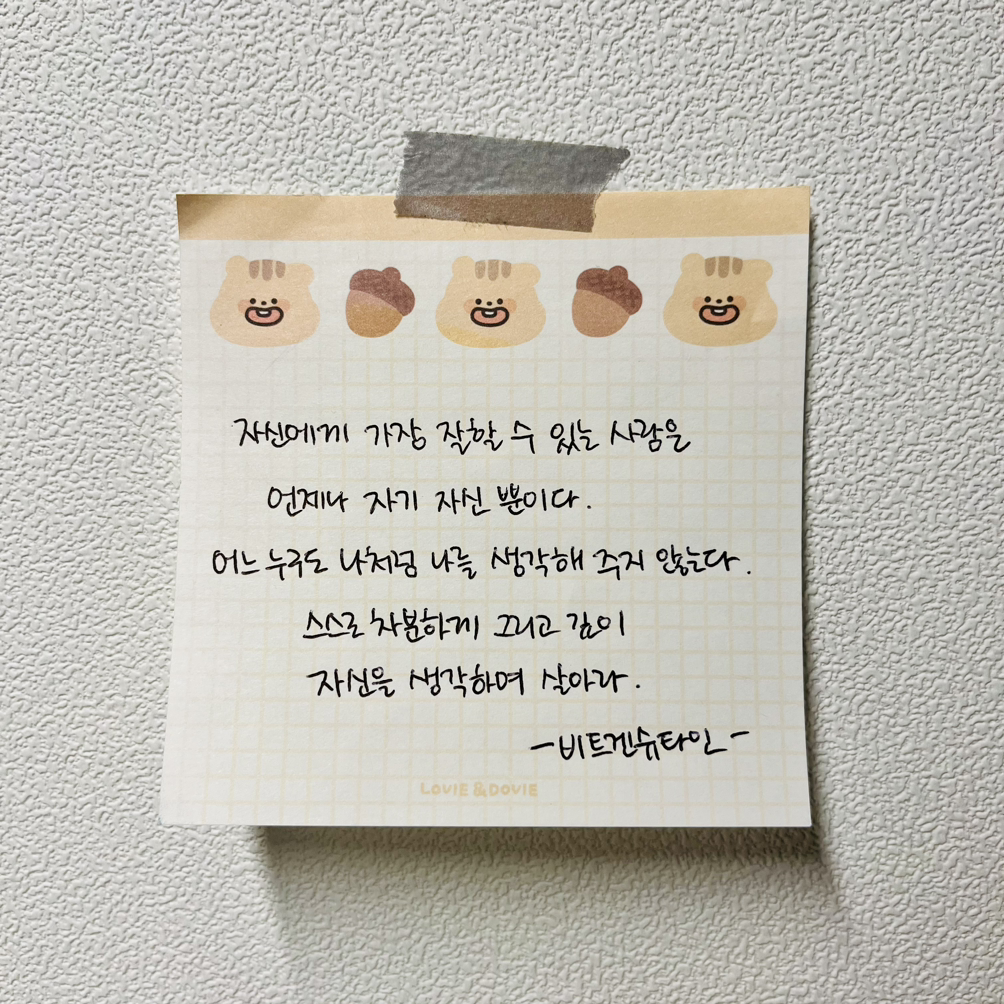 자신에게 가장 잘할 수 있는 사람은
언제나 자기 자신 뿐이다.
어느 누구도 나처럼 나를 생각해 주지 않는다.
스스로 차분하게 그리고 깊이
자신을 생각하며 살아라.
-비트겐슈타인-
LOVIE & DOVIE